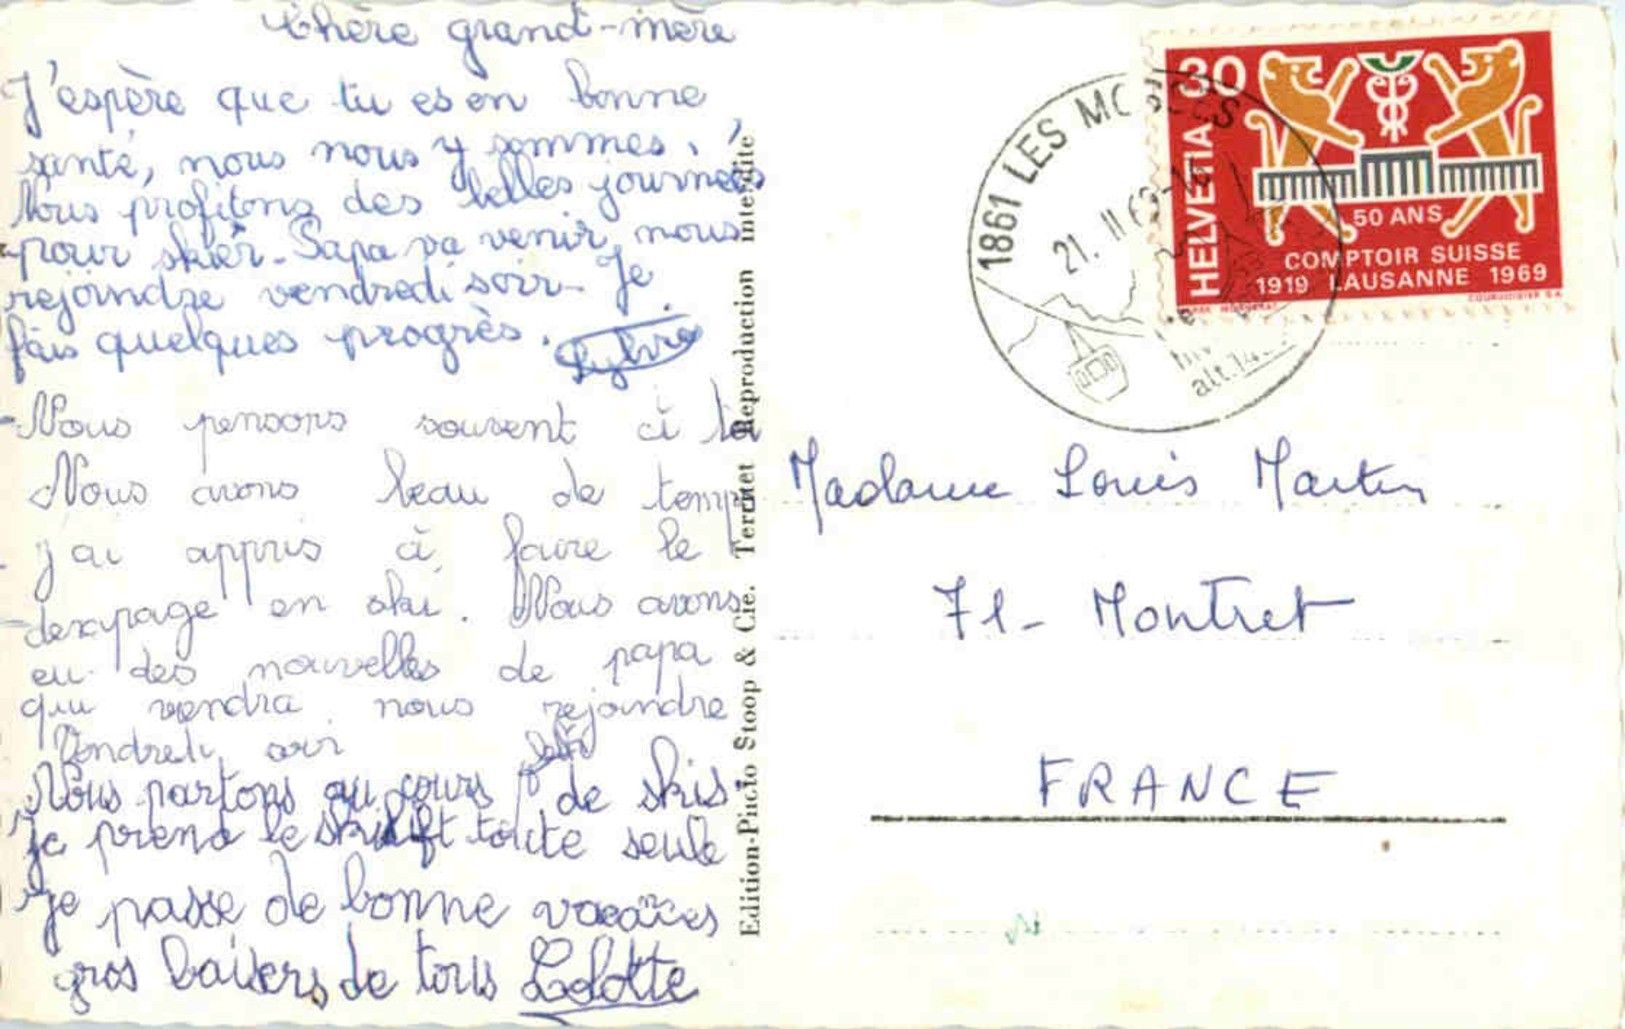 Chère grand-mère
J'espère que tu es en bonne
santé, nous nous y sommes.
Nous profitons des belles journées
pour skier. Papa va venir nous
rejoindre vendredi soir. Je
fais quelques progrès. Sylvie
Nous pensons souvent à toi
Nous avons beau de temps
j'ai appris à faire le
derapage en ski. Nous avons
eu des nouvelles de papa
qui viendra nous rejoindre
Vendredi soir
Nous partons au cours de skis
Je prend le skilift toute seule
Je passe de bonne vacances
gros baisers de tous Lolotte
Edition-Photo Stoop & Cie. Territet Reproduction interdite
1861 LES MOSSES
21. II 69-14
alt. 14
30
HELVETIA
50 ANS
COMPTOIR SUISSE
1919 LAUSANNE 1969
COURVOISIER S.A.
Madame Louis Martin
71- Montret
FRANCE